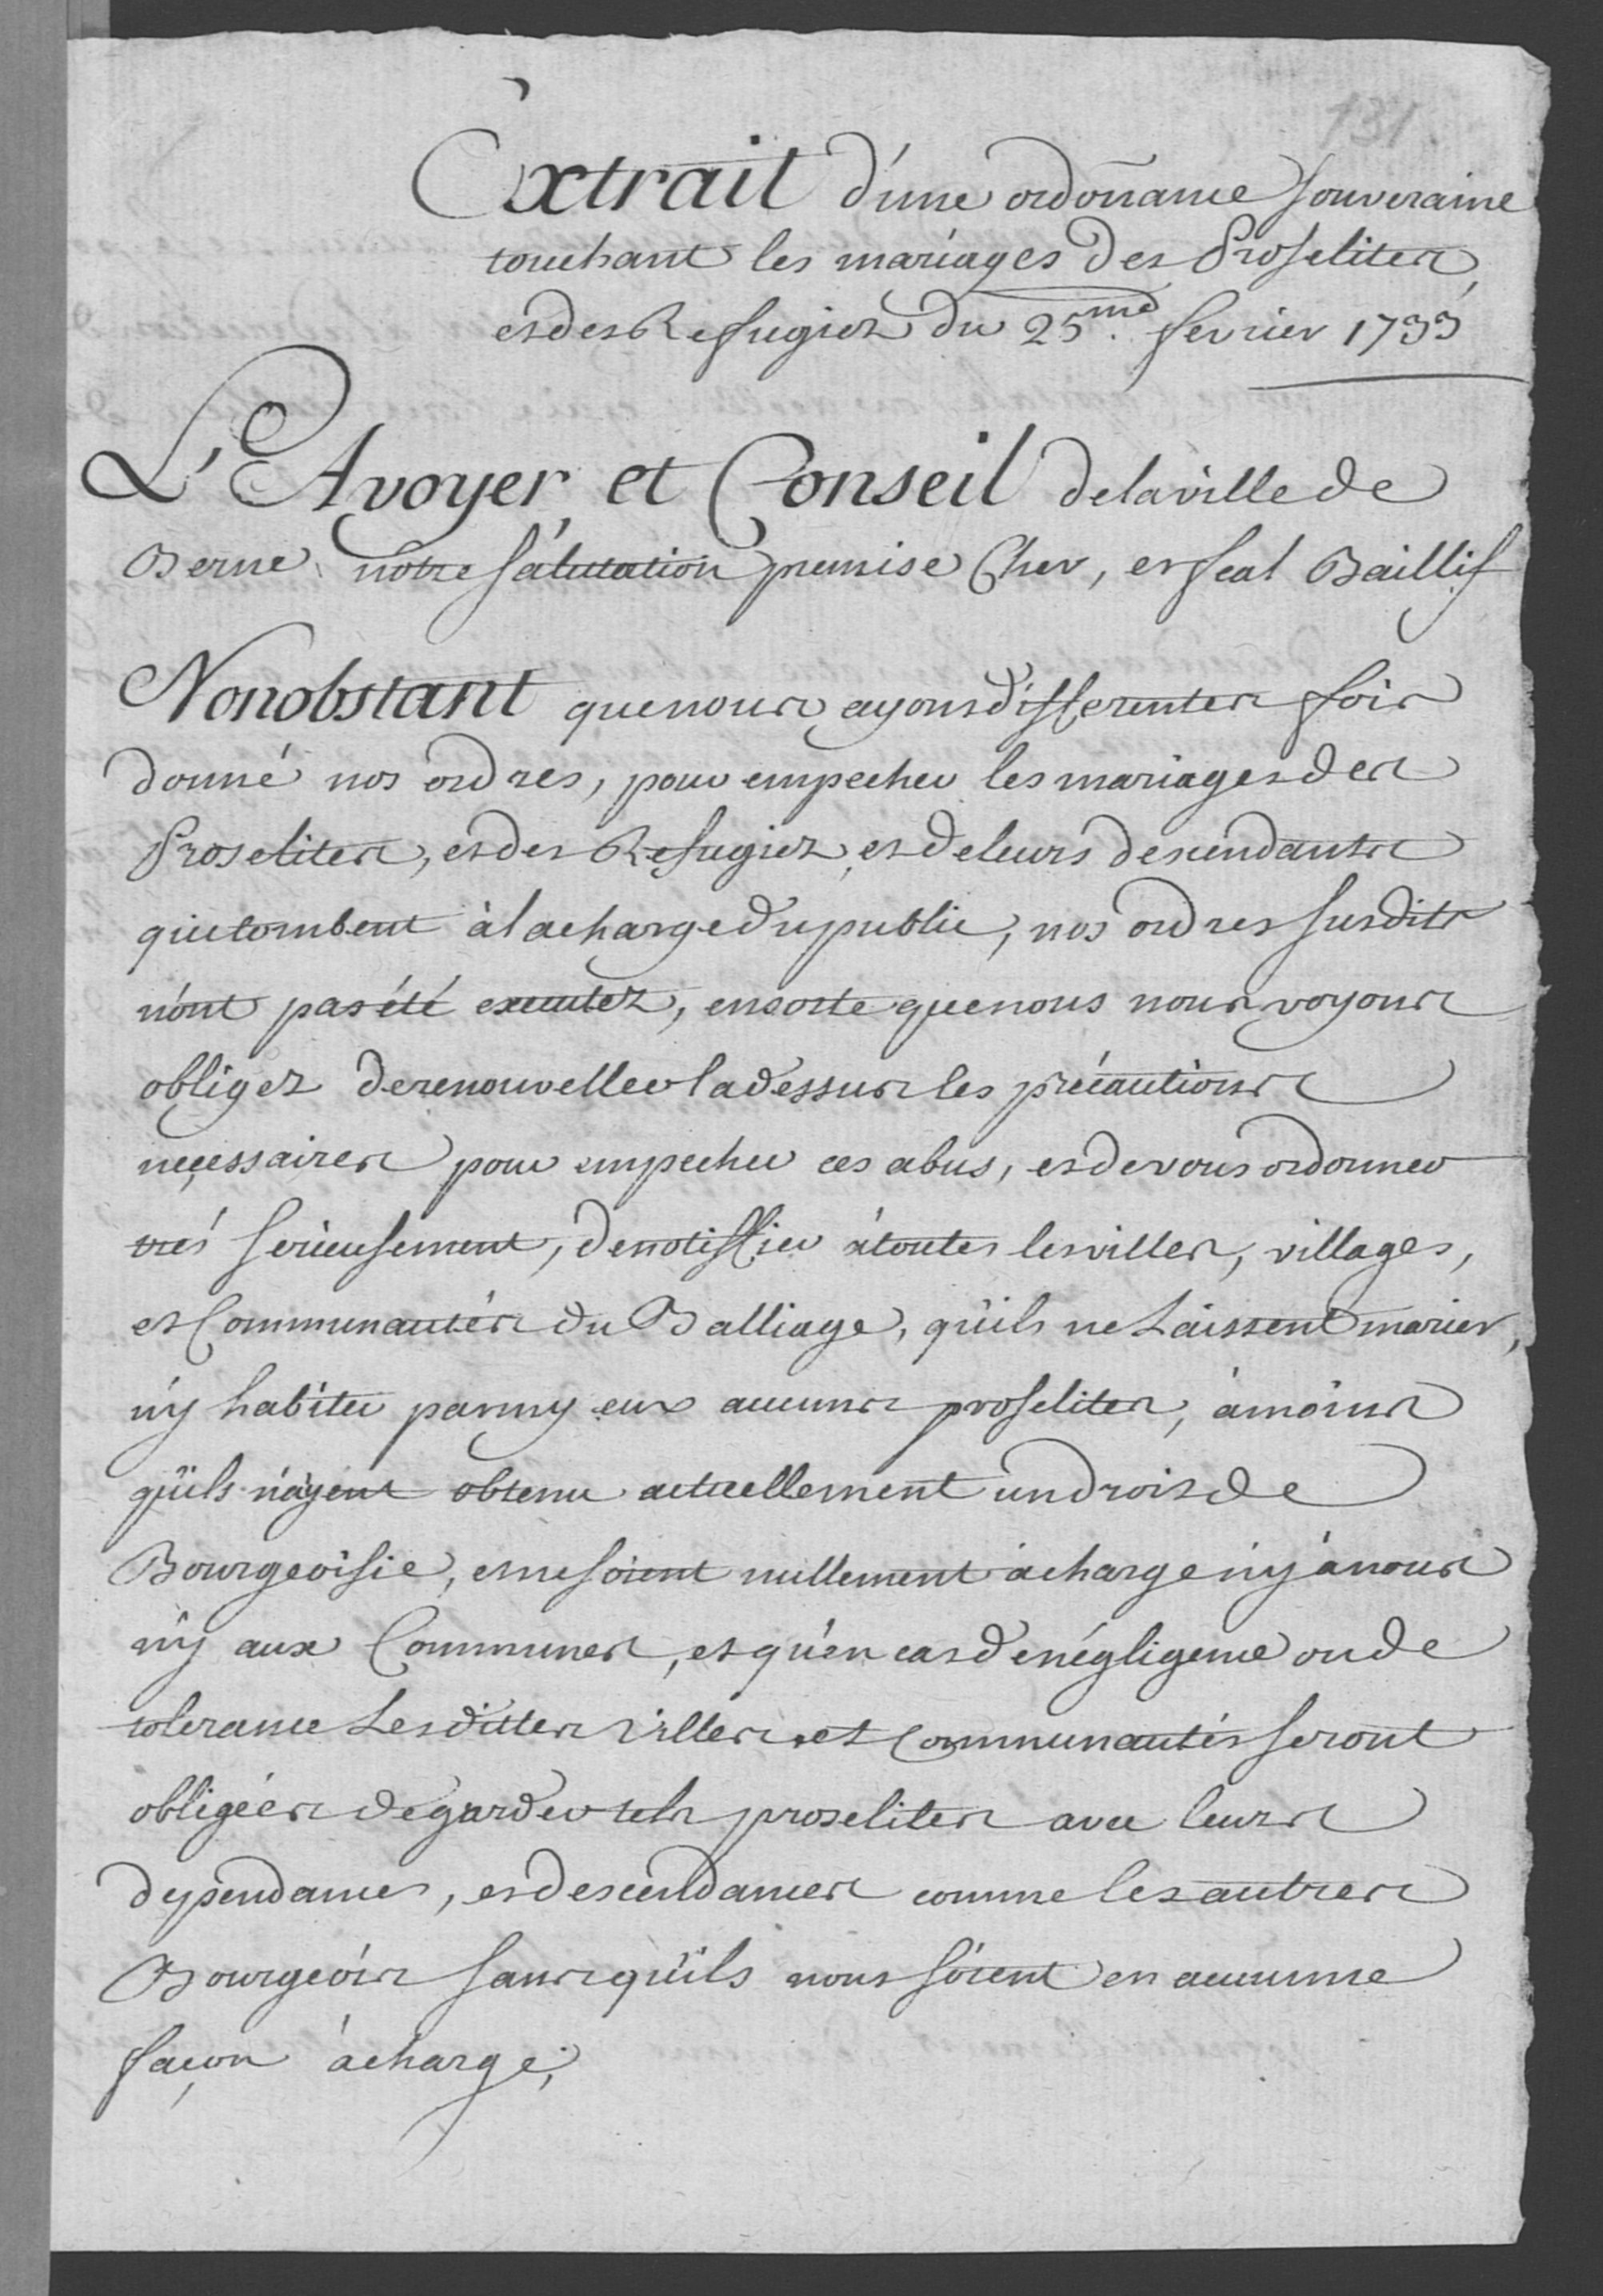 131.
Extrait d'une ordoñance souveraine
touchant les mariages des Proselites,
et des Refugiez du 25.me fevrier 1733
L'Avoyer et Conseil de la ville de
Berne notre salutation premise Cher, et feal Baillif
Nonobstant que nous ayons differentes fois
donné nos ordres, pour empecher les mariages des
Proselites, et des Refugiez, et de leurs descendants
qui tombent à la charge du public, nos ordres susdits
n'ont pas été executez, ensorte que nous nous voyons
obligez de renouveller la dessus les précautions
neçessaires pour empecher ces abus, et de vous ordonner
trés serieusement, de notiffier à toutes les villes, villages,
et Communautés du Balliage, qu'ils ne Laissent marier,
n'y habiter parmy eux aucuns proselites, à moins
qu'ils n'ayent obtenu actuellement un droit de
Bourgeoisie, et ne soient nullement à charge n'y à nous
n'y aux Communes, et qu'en cas de négligence ou de
tolerance Lesdittes Villes et Communautés seront
obligées de garder tels proselites avec leurs
dependances, et descendances comme les autres
Bourgeois sans qu'ils nous soient en aucunne
façon à charge;